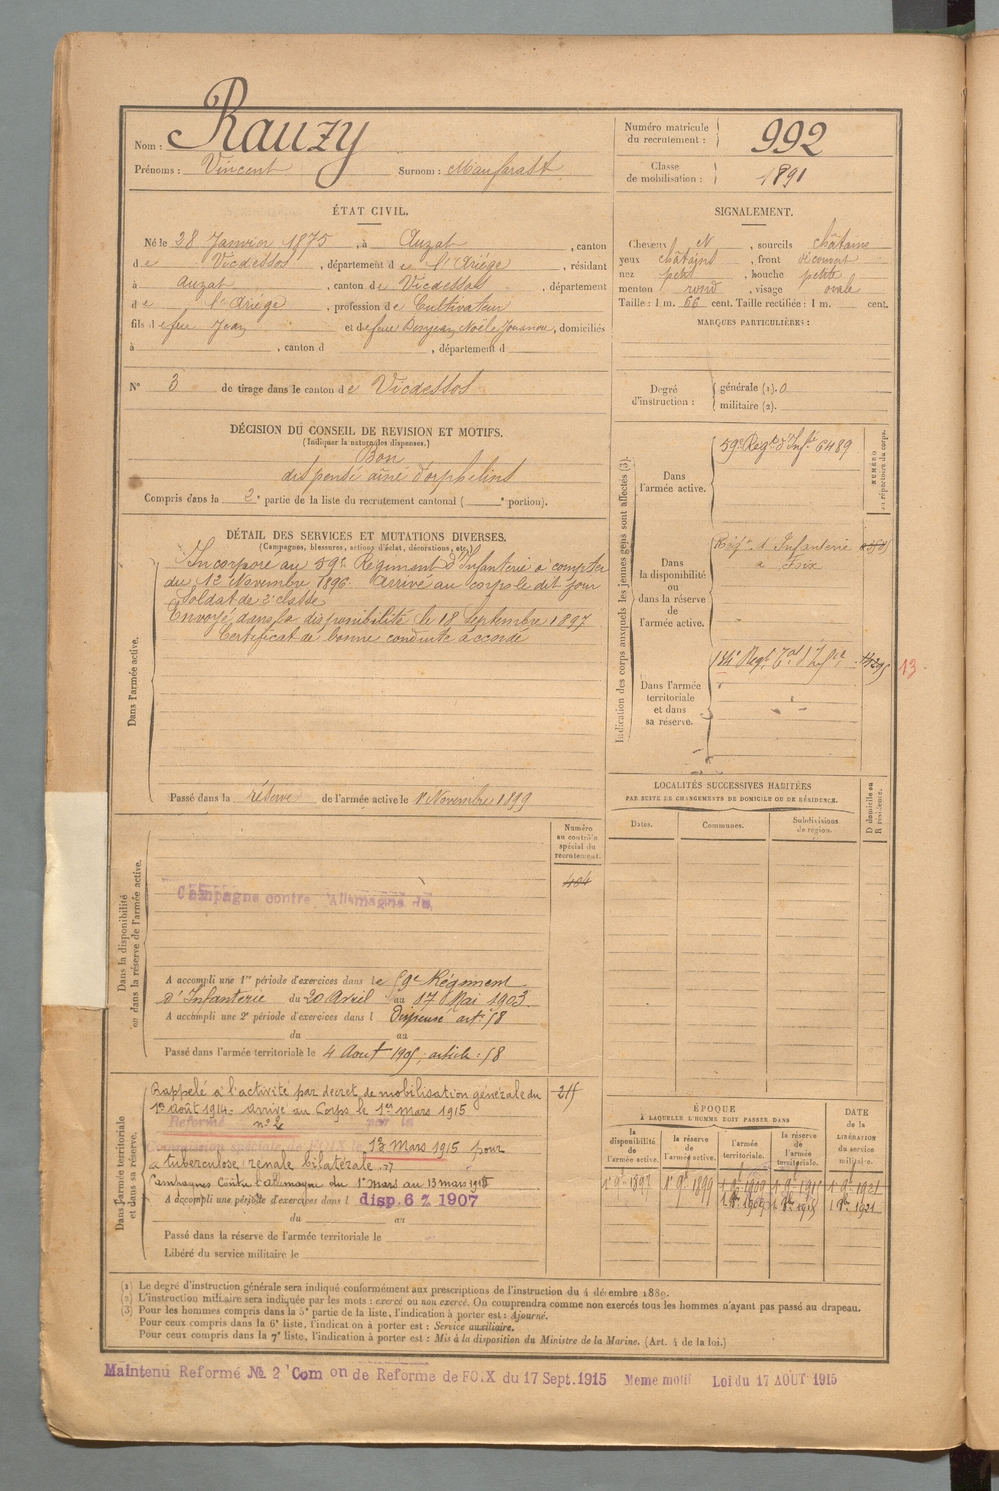 Nom : Rauzy
Prénoms : Vincent Surnom :
Numéro matricule du recrutement : 992
Classe de mobilisation : 1891
ÉTAT CIVIL.
Né le 28 Janvier 1875, à Auzat, canton
de Vicdessos, département de l'Ariège, résidant
à Auzat, canton de Vicdessos, département
de l'Ariège, profession de Cultivateur
fils de feu Jean et de feue Noële, domiciliés
à , canton d , département d
SIGNALEMENT.
Cheveux N, sourcils châtains
yeux châtains, front découvert
nez petit, bouche petite
menton rond, visage ovale
Taille : 1 m. 66 cent. Taille rectifiée : 1 m. cent.
MARQUES PARTICULIÈRES :
N° 3 de tirage dans le canton de Vicdessos
Degré d'instruction : générale (1). 0
militaire (2).
DÉCISION DU CONSEIL DE REVISION ET MOTIFS.
(Indiquer la nature des dispenses.)
Bon
dispensé aîné d'orphelins
Compris dans la 2e partie de la liste du recrutement cantonal ( e portion).
DÉTAIL DES SERVICES ET MUTATIONS DIVERSES.
(Campagnes, blessures, actions d'éclat, décorations, etc.)
Dans l'armée active.
Incorporé au 59e Régiment d'Infanterie à compter
du 12 Novembre 1896. Arrivé au corps le dit jour
Soldat de 2e classe
Envoyé dans la disponibilité le 18 Septembre 1897
Certificat de bonne conduite accordé
Passé dans la réserve de l'armée active le 1er Novembre 1899
Indication des corps auxquels les jeunes gens sont affectés (3).
NUMÉRO au répertoire du corps.
Dans l'armée active.
59e Regt d'Inft 6489
Dans la disponibilité ou dans la réserve de l'armée active.
Régt d'Infanterie
à Foix
Dans l'armée territoriale et dans sa réserve.
134e Regt Tal d'Infie
13
LOCALITÉS SUCCESSIVES HABITÉES
PAR SUITE DE CHANGEMENTS DE DOMICILE OU DE RÉSIDENCE.
Dates. Communes. Subdivisions de région.
D domicile ou R résidence.
Dans la disponibilité ou dans la réserve de l'armée active.
Numéro au contrôle spécial du recrutement.
404
Campagne contre l'Allemagne du
A accompli une 1re période d'exercices dans le 59e Régiment
d'Infanterie du 20 Avril au 17 Mai 1903
A accompli une 2e période d'exercices dans l Dispensé art. 58
du au
Passé dans l'armée territoriale le 4 Aout 1905, article 58
Dans l'armée territoriale et dans sa réserve.
Rappelé à l'activité par decret de mobilisation générale du
1er août 1914. Arrivé au Corps le 1er mars 1915
Réformé n° 2 par la
Commission spéciale de FOIX le 13 Mars 1915 pour
tuberculose rénale bilatérale
Campagnes Contre l'allemagne du 1er mars au 13 mars 1915
A accompli une période d'exercices dans l disp. 6 % 1907
du au
Passé dans la réserve de l'armée territoriale le
Libéré du service militaire le
ÉPOQUE
À LAQUELLE L'HOMME DOIT PASSER DANS
la disponibilité de l'armée active. la réserve de l'armée active. l'armée territoriale. la réserve de l'armée territoriale.
DATE de la LIBÉRATION du service militaire.
(1) Le degré d'instruction générale sera indiqué conformément aux prescriptions de l'instruction du 4 décembre 1889.
(2) L'instruction militaire sera indiquée par les mots : exercé ou non exercé. On comprendra comme non exercés tous les hommes n'ayant pas passé au drapeau.
(3) Pour les hommes compris dans la 5e partie de la liste, l'indication à porter est : Ajourné.
Pour ceux compris dans la 6e liste, l'indication à porter est : Service auxiliaire.
Pour ceux compris dans la 7e liste, l'indication à porter est : Mis à la disposition du Ministre de la Marine. (Art. 4 de la loi.)
Maintenu Reformé No 2 Com on de Reforme de FOIX du 17 Sept. 1915 Meme motif Loi du 17 AOÛT 1915